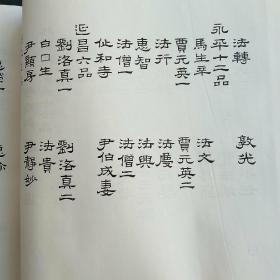 法轉
敦光
永平十二品
法文
賈元英一
賈元英二
法行
法慶
惠智
法興
法僧一
法僧二
和寺
尹伯成妻
延昌六品
劉洛真一
劉洛真二
白口生
法貴
尹顯房
尹靜妙